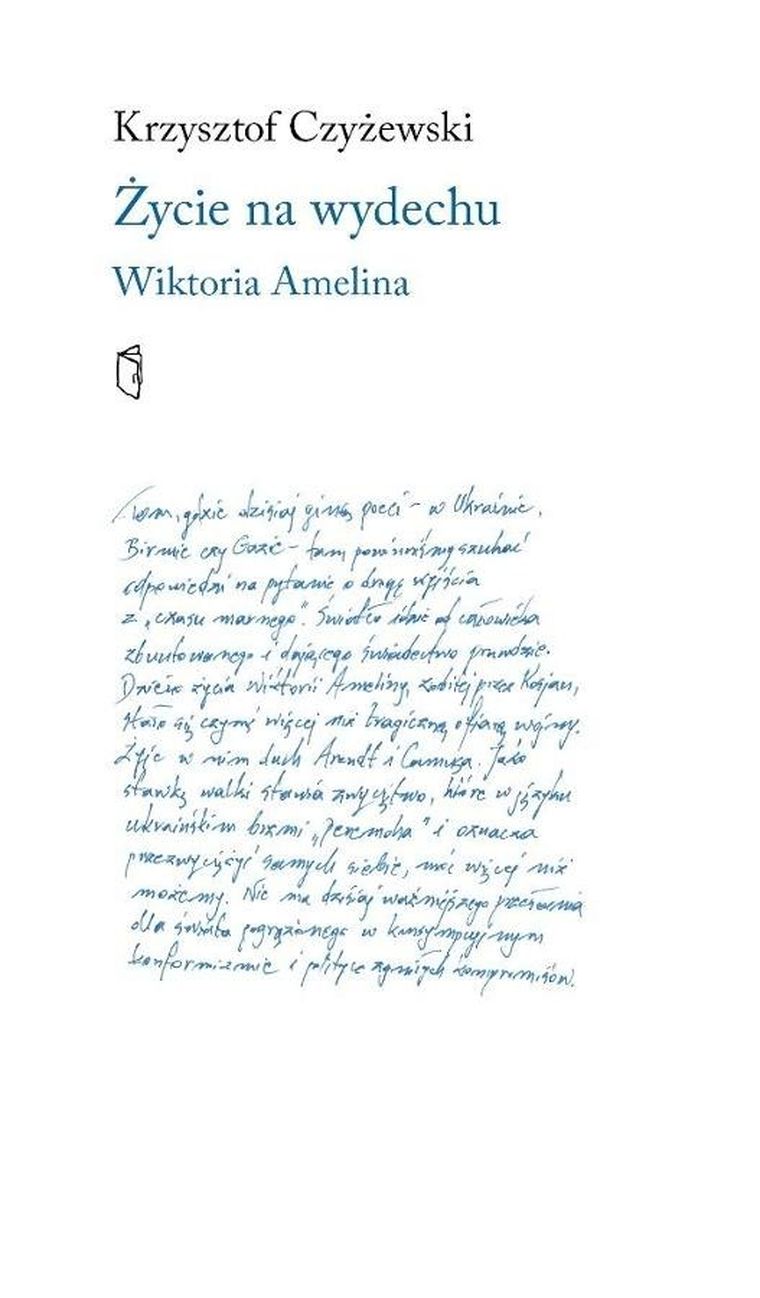 Krzysztof Czyżewski
Życie na wydechu
Wiktoria Amelina
Tam, gdzie dzisiaj giną poeci – w Ukrainie,
Birmie czy Gazie – tam powinniśmy szukać
odpowiedzi na pytanie o drogę wyjścia
z „czasu marnego". Światło idzie od człowieka
zbuntowanego i dającego świadectwo prawdzie.
Dzieło życia Wiktorii Ameliny, zabitej przez Rosjan,
stało się czymś więcej niż tragiczną ofiarą wojny.
Żyje w nim duch Arendt i Camusa. Jako
stawkę walki stawia zwycięstwo, które w języku
ukraińskim brzmi „peremoha" i oznacza
przezwyciężyć samych siebie, móc więcej niż
możemy. Nic ma dzisiaj ważniejszego przesłania
dla świata pogrążonego w konsumpcyjnym
konformizmie i polityce zgniłych kompromisów.